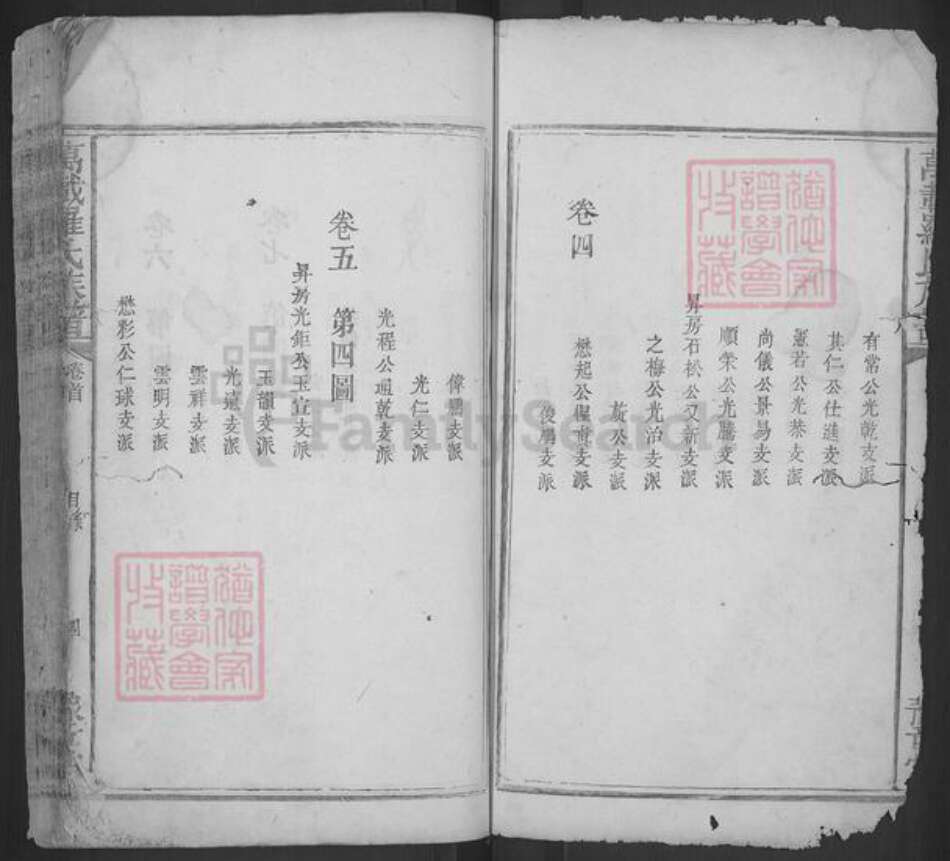 有常公光乾支派
其仁公仕進支派
憲若公光恭支派
尚儀公景易支派
順榮公光騰支派
昇房石松公又新支派
之梅公光治支派
黃公支派
懋起公偘責支派
俊鵬支派
卷四
偉鵬支派
光仁支派
光程公通乾支派
卷五 第四圖
昇房光鉅公玉宣支派
玉韻支派
光遠支派
雲祥支派
雲明支派
懋彩公仁球支派
萬載羅氏族譜 卷首 目錄
猶他家譜學會收藏
猶他家譜學會收藏
FamilySearch